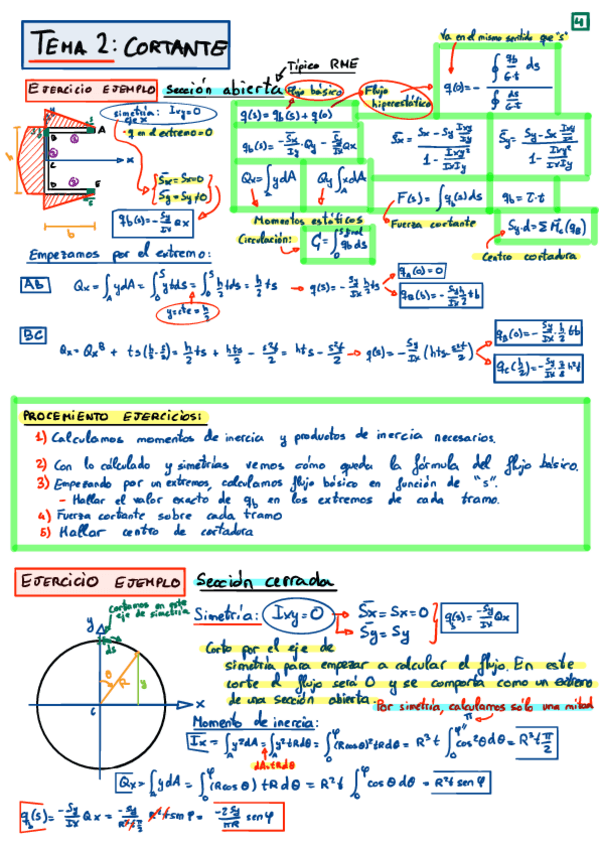 4
TEMA 2: CORTANTE
Va en el mismo sentido que "s"
Típico RME
EJERCICIO EJEMPLO sección abierta
Flujo básico
Flujo hiperestático
q(s) = q_b(s) + q(0)
q(0) = - ∮ q_b/(G·t) ds / ∮ ds/(G·t)
simetría: Ixy = 0
eje x
· q en el extremo = 0
q_b(s) = -S̄y/Ix · Qx
Qx = ∫_A y dA
Qy = ∫_A x dA
Momentos estáticos
F(s) = ∫ q_b(s) ds
Fuerza cortante
q_b = τ·t
Sy·d = Σ M_c(q_b)
Centro cortadura
Circulación:
S̄x = Sx = 0
S̄y = Sy ≠ 0
Empezamos por el extremo:
AB
Qx = ∫_A y dA = ∫_0^s y t ds = ∫_0^s h/2 t ds = h/2 ts
y = cte = h/2
q(s) = -Sy/Ix h/2 ts
q_A(0) = 0
q_B(s) = -Sy/Ix h/2 tb
BC
Qx = Qx^B + ts(h/2 - s/2) = h/2 ts + hts/2 - s²t/2 = hts - s²t/2
q(s) = -Sy/Ix (hts - s²t/2)
q_B(0) = -Sy/Ix h/2 tb
PROCEMIENTO EJERCICIOS:
1) Calculamos momentos de inercia y productos de inercia necesarios.
2) Con lo cálculado y simetrías vemos cómo queda la fórmula del flujo básico.
3) Empezando por un extremos, calculamos flujo básico en función de "s".
- Hallar el valor exacto de q_b en los extremos de cada tramo.
4) Fuerza cortante sobre cada tramo
5) Hallar centro de cortadura
EJERCICIO EJEMPLO sección cerrada
Cortamos en este eje de simetría
Simetría: Ixy = 0
S̄x = Sx = 0
S̄y = Sy
q_b(s) = -Sy/Ix Qx
Corto por el eje de
simetría para empezar a calcular el flujo. En este
corte el flujo será 0 y se comporta como un extremo
de una sección abierta.
Por simetría, calculamos sólo una mitad
Momento de inercia:
Ix = ∫_A y² dA = ∫_A y² t R dθ = ∫_0^φ (R cos θ)² t R dθ = R³t ∫_0^φ cos² θ dθ = R³t π/2
π
dA = tR dθ
Qx = ∫_A y dA = ∫_0^φ (R cos θ) t R dθ = R²t ∫_0^φ cos θ dθ = R²t sen φ
q_b(s) = -Sy/Ix Qx = -Sy/(R³t π/2) R²t sen φ = -2Sy/(πR) sen φ
y
x
C
θ
R
y
ds